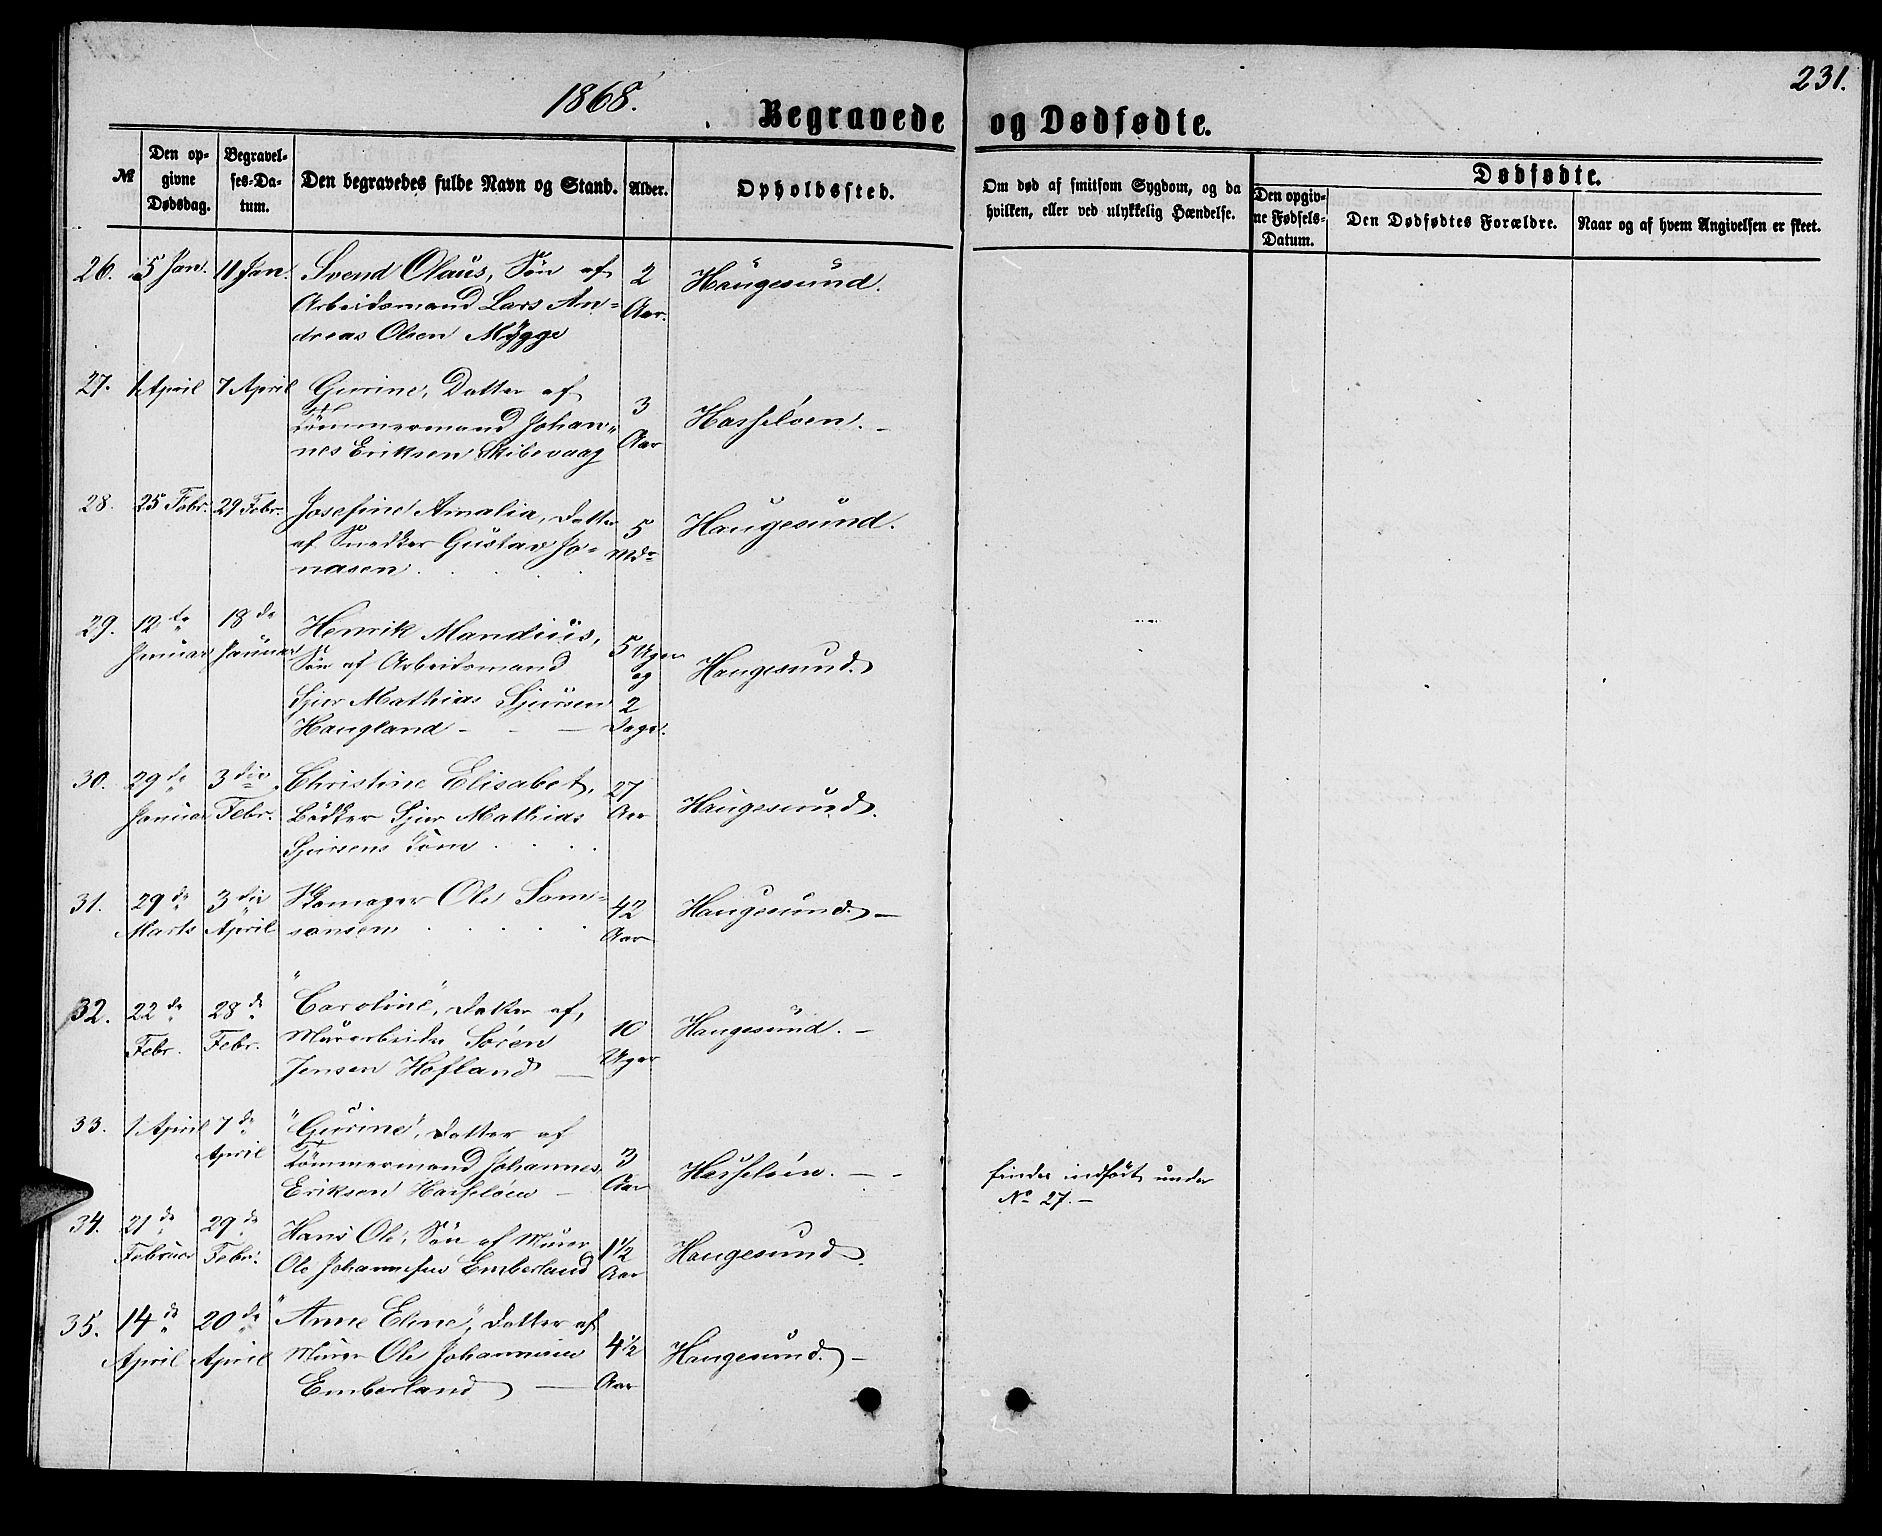 231.
1868.
Begravede og Dødfødte.
№
Den op-
givne
Dødsdag.
Begravel-
ses-Da-
tum.
Den begravedes fulde Navn og Stand.
Alder.
Opholdssted.
Om død af smitsom Sygdom, og da
hvilken, eller ved ulykkelig Hændelse.
Dødfødte.
Den opgiv-
ne Fødsels-
Datum.
Den Dødfødtes Forældre.
Naar og af hvem Angivelsen er skeet.
26. 5 Jan. 11 Jan. Svend Olaus, Søn af 2 Haugesund.
Arbeidsmand Lars An= Aar.
dreas Olsen Mygge
27. 1 April 7 April Gurine, Datter af 3
Tömmermand Johan= Aar Hasseløen.
nes Eriksen Skibevaag
28. 25 Febr. 29 Febr. Josefine Amalia, Datter 5 Haugesund.
af Snedker Gustav Jo= Mdr
nasen
29. 12de 18de Henrik Mandius, 5 Uger
Januar Januar Søn af Arbeidsmand og Haugesund.
Sjur Mathias Sjursen 2
Haugland Dage.
30. 29de 3die Christine Elisabet, 27 Haugesund.
Januar Febr. Bödker Sjur Mathias Aar
Sjursens Kone
31. 29de 3die Skomager Ole Sam= 42 Haugesund.
Marts April sonsen Aar
32. 22de 28de "Caroline", Datter af, 10 Haugesund.
Febr. Febr. Mürarbeider Sören Uger
Jensen Hofland
33. 1 April 7de "Gurine", Datter af 3 Hasseløen.
April Tömmermand Johannes Aar
Eriksen Hasseløen
findes indført under
No 27.
34. 21de 29de Hans Ole, Søn af Murer 1½ Haugesund.
Februar Febr. Ole Johannesen Emberland Aar
35. 14de 20de "Anne Eline", Datter af 4½ Haugesund.
April April Murer Ole Johannesen Aar
Emberland